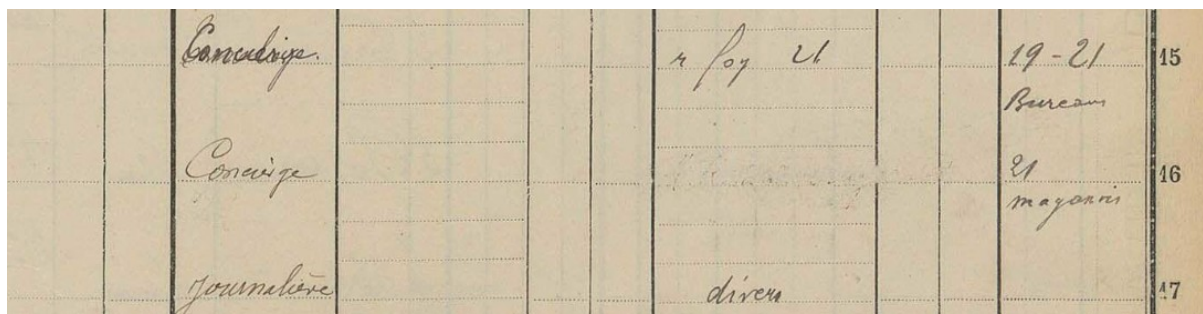 Concierge. r foy 21 19-21 15
Bureaux
Concierge 21 16
magasins
Journalière divers 17